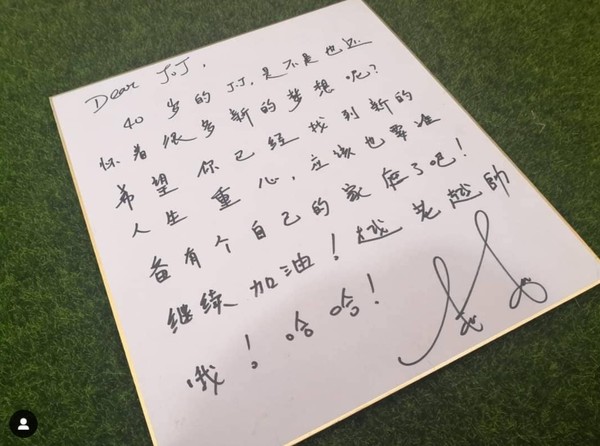 Dear JJ,
40岁的JJ,是不是也还
怀着很多新的梦想呢?
希望你已经找到新的
人生重心,应该也要准
备有个自己的家庭了吧!
继续加油!越老越帥
哦!哈哈!